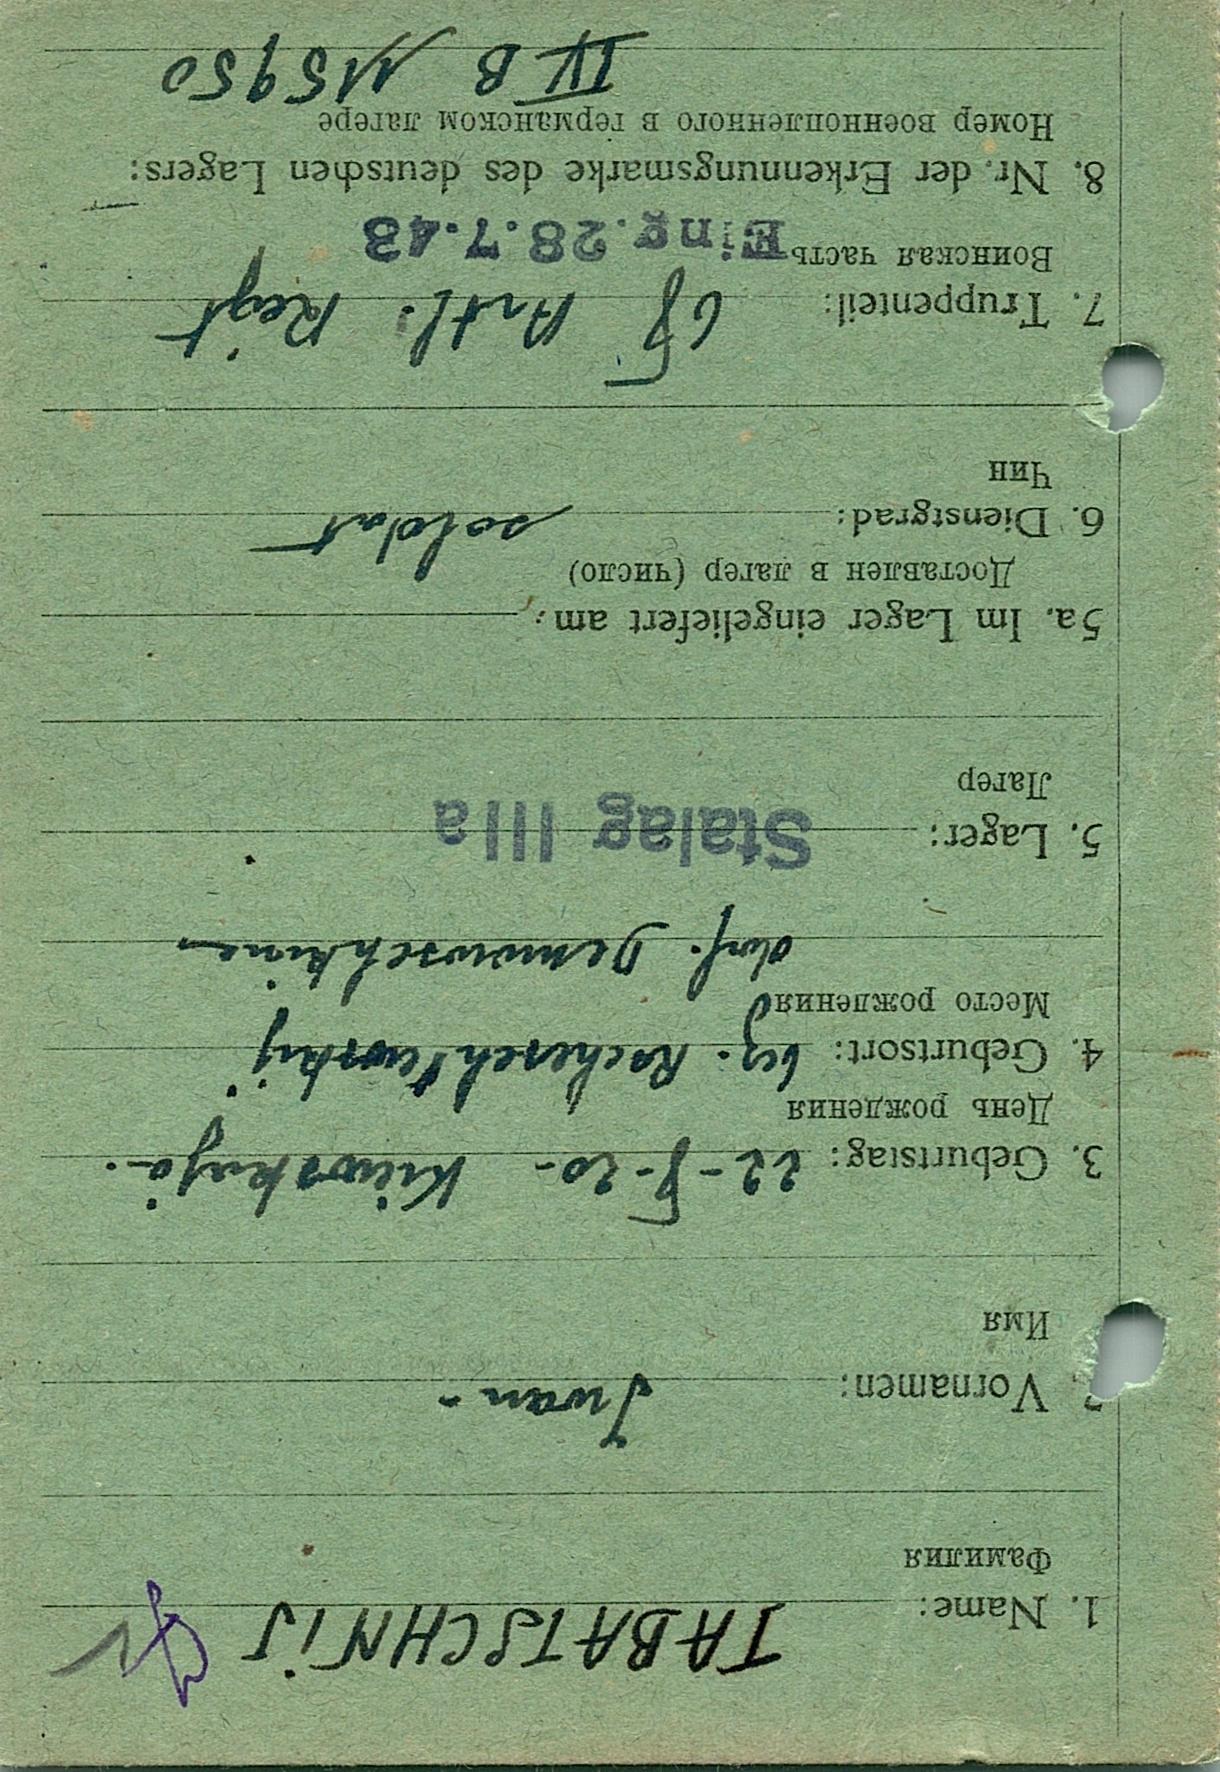 1. Name: TABATSCHNiJ
Фамилия
Vornamen: Iwan -
Имя
3. Geburtstag: 22 - - 20 - Kiewskaja.
День рождения
4. Geburtsort: bez.
Место рождения
dorf.
5. Lager: Stalag IIIa
Лагер
5a. Im Lager eingeliefert am:
Доставлен в лагер (число)
6. Dienstgrad: soldat
Чин
7. Truppenteil: Artl. Regt
Воинская часть Eing. 28. 7. 43
8. Nr. der Erkennungsmarke des deutschen Lagers:
Номер военнопленного в германском лагере
IV B 115950